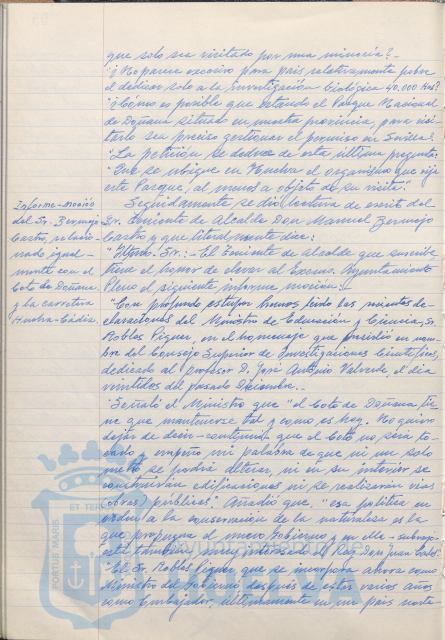 que solo sea visitado por una minoría?-
"¿No parece excesivo para país relativamente pobre
el dedicar solo a la investigación biológica 40.000 Has?
"¿Cómo es posible que estando el Parque Nacional
de Doñana situado en nuestra provincia, para visi-
tarlo sea preciso gestionar el permiso en Sevilla?
"La petición se deduce de esta última pregunta:
"Que se ubique en Huelva el organismo que rija
este Parque, al menos a objeto de su visita".
Seguidamente se dio lectura de escrito del
Sr. Teniente de Alcalde Don Manuel Bermejo
Castro y que literalmente dice:
Informe-Moción
del Sr. Bermejo
Castro, relacio-
nado igual-
mente con el
Coto de Doñana
y la carretera
Huelva-Cádiz.
"Iltmo. Sr.:- El Teniente de Alcalde que suscribe
tiene el honor de elevar al Excmo. Ayuntamiento
Pleno el siguiente informe moción:-
"Con profundo estupor hemos leído las recientes de-
claraciones del Ministro de Educación y Ciencia, Sr.
Robles Piquer, en el homenaje que presidió en nom-
bre del Consejo Superior de Investigaciones Científicas,
dedicado al profesor D. José Antonio Valverde, el día
veintidos del pasado Diciembre.-
"Señaló el Ministro que "el Coto de Doñana tie-
ne que mantenerse tal y como es hoy. No quiero
dejar de decir -continuó- que el Coto no será to-
cado y empeño mi palabra de que ni un solo
metro se podrá alterar, ni en su interior se
construirán edificaciones ni se realizarán vías
(obras) públicas". Añadió que, "esa política en
orden a la conservación de la naturaleza es la
que propugna el nuevo Gobierno y en ella -subrayó-
está también muy interesado el Rey Don Juan Carlos".
"El Sr. Robles Piquer que se incorpora ahora como
Ministro del Gobierno después de estar varios años
como Embajador, últimamente en un país norte-
ET TERRAE
PORTUS MARIS
HUELVA